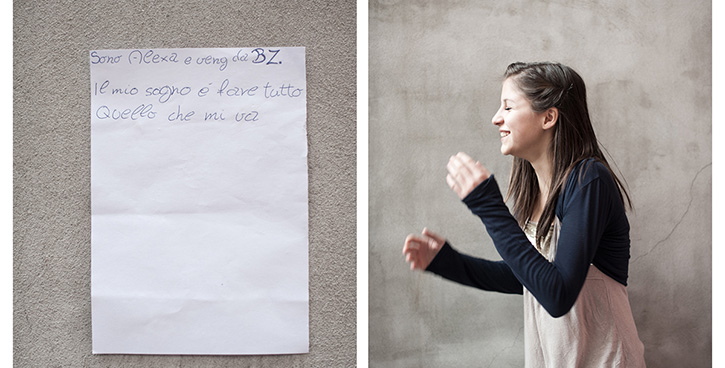 Sono Alexa e veng da BZ.
Il mio sogno é fare tutto
Quello che mi va